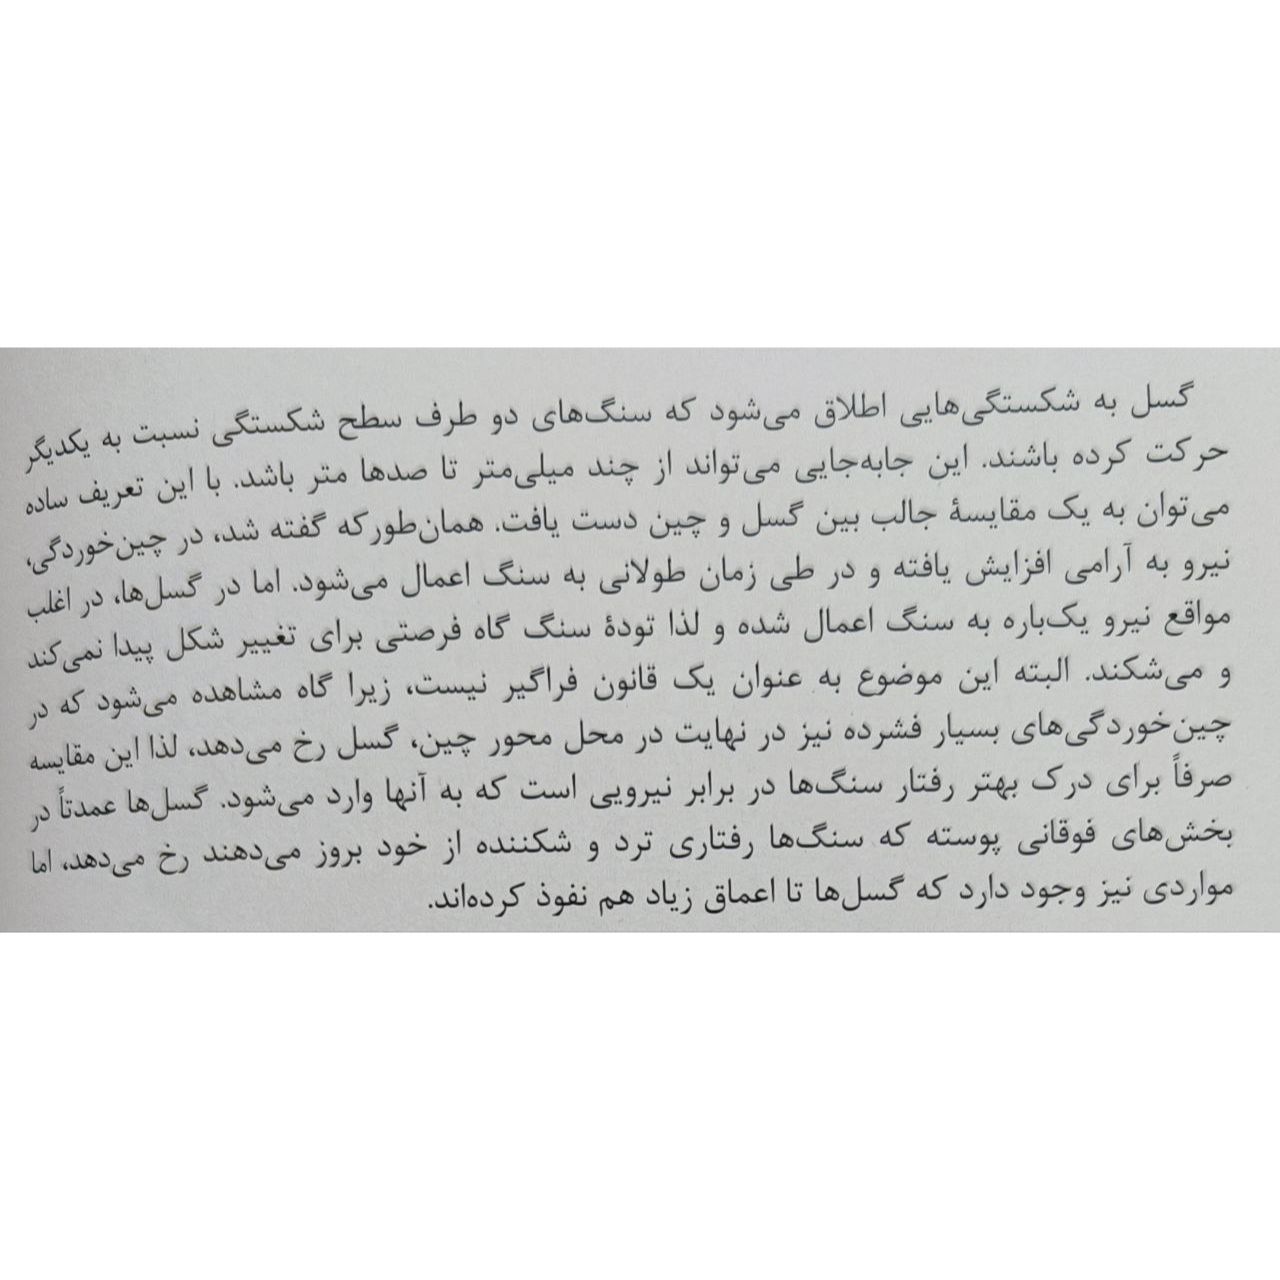 گسل به شکستگی‌هایی اطلاق می‌شود که سنگ‌های دو طرف سطح شکستگی نسبت به یکدیگر
حرکت کرده باشند. این جابه‌جایی می‌تواند از چند میلی‌متر تا صدها متر باشد. با این تعریف ساده
می‌توان به یک مقایسهٔ جالب بین گسل و چین دست یافت. همان‌طورکه گفته شد، در چین‌خوردگی،
نیرو به آرامی افزایش یافته و در طی زمان طولانی به سنگ اعمال می‌شود. اما در گسل‌ها، در اغلب
مواقع نیرو یک‌باره به سنگ اعمال شده و لذا تودهٔ سنگ گاه فرصتی برای تغییر شکل پیدا نمی‌کند
و می‌شکند. البته این موضوع به عنوان یک قانون فراگیر نیست، زیرا گاه مشاهده می‌شود که در
چین‌خوردگی‌های بسیار فشرده نیز در نهایت در محل محور چین، گسل رخ می‌دهد، لذا این مقایسه
صرفاً برای درک بهتر رفتار سنگ‌ها در برابر نیرویی است که به آنها وارد می‌شود. گسل‌ها عمدتاً در
بخش‌های فوقانی پوسته که سنگ‌ها رفتاری ترد و شکننده از خود بروز می‌دهند رخ می‌دهد، اما
مواردی نیز وجود دارد که گسل‌ها تا اعماق زیاد هم نفوذ کرده‌اند.